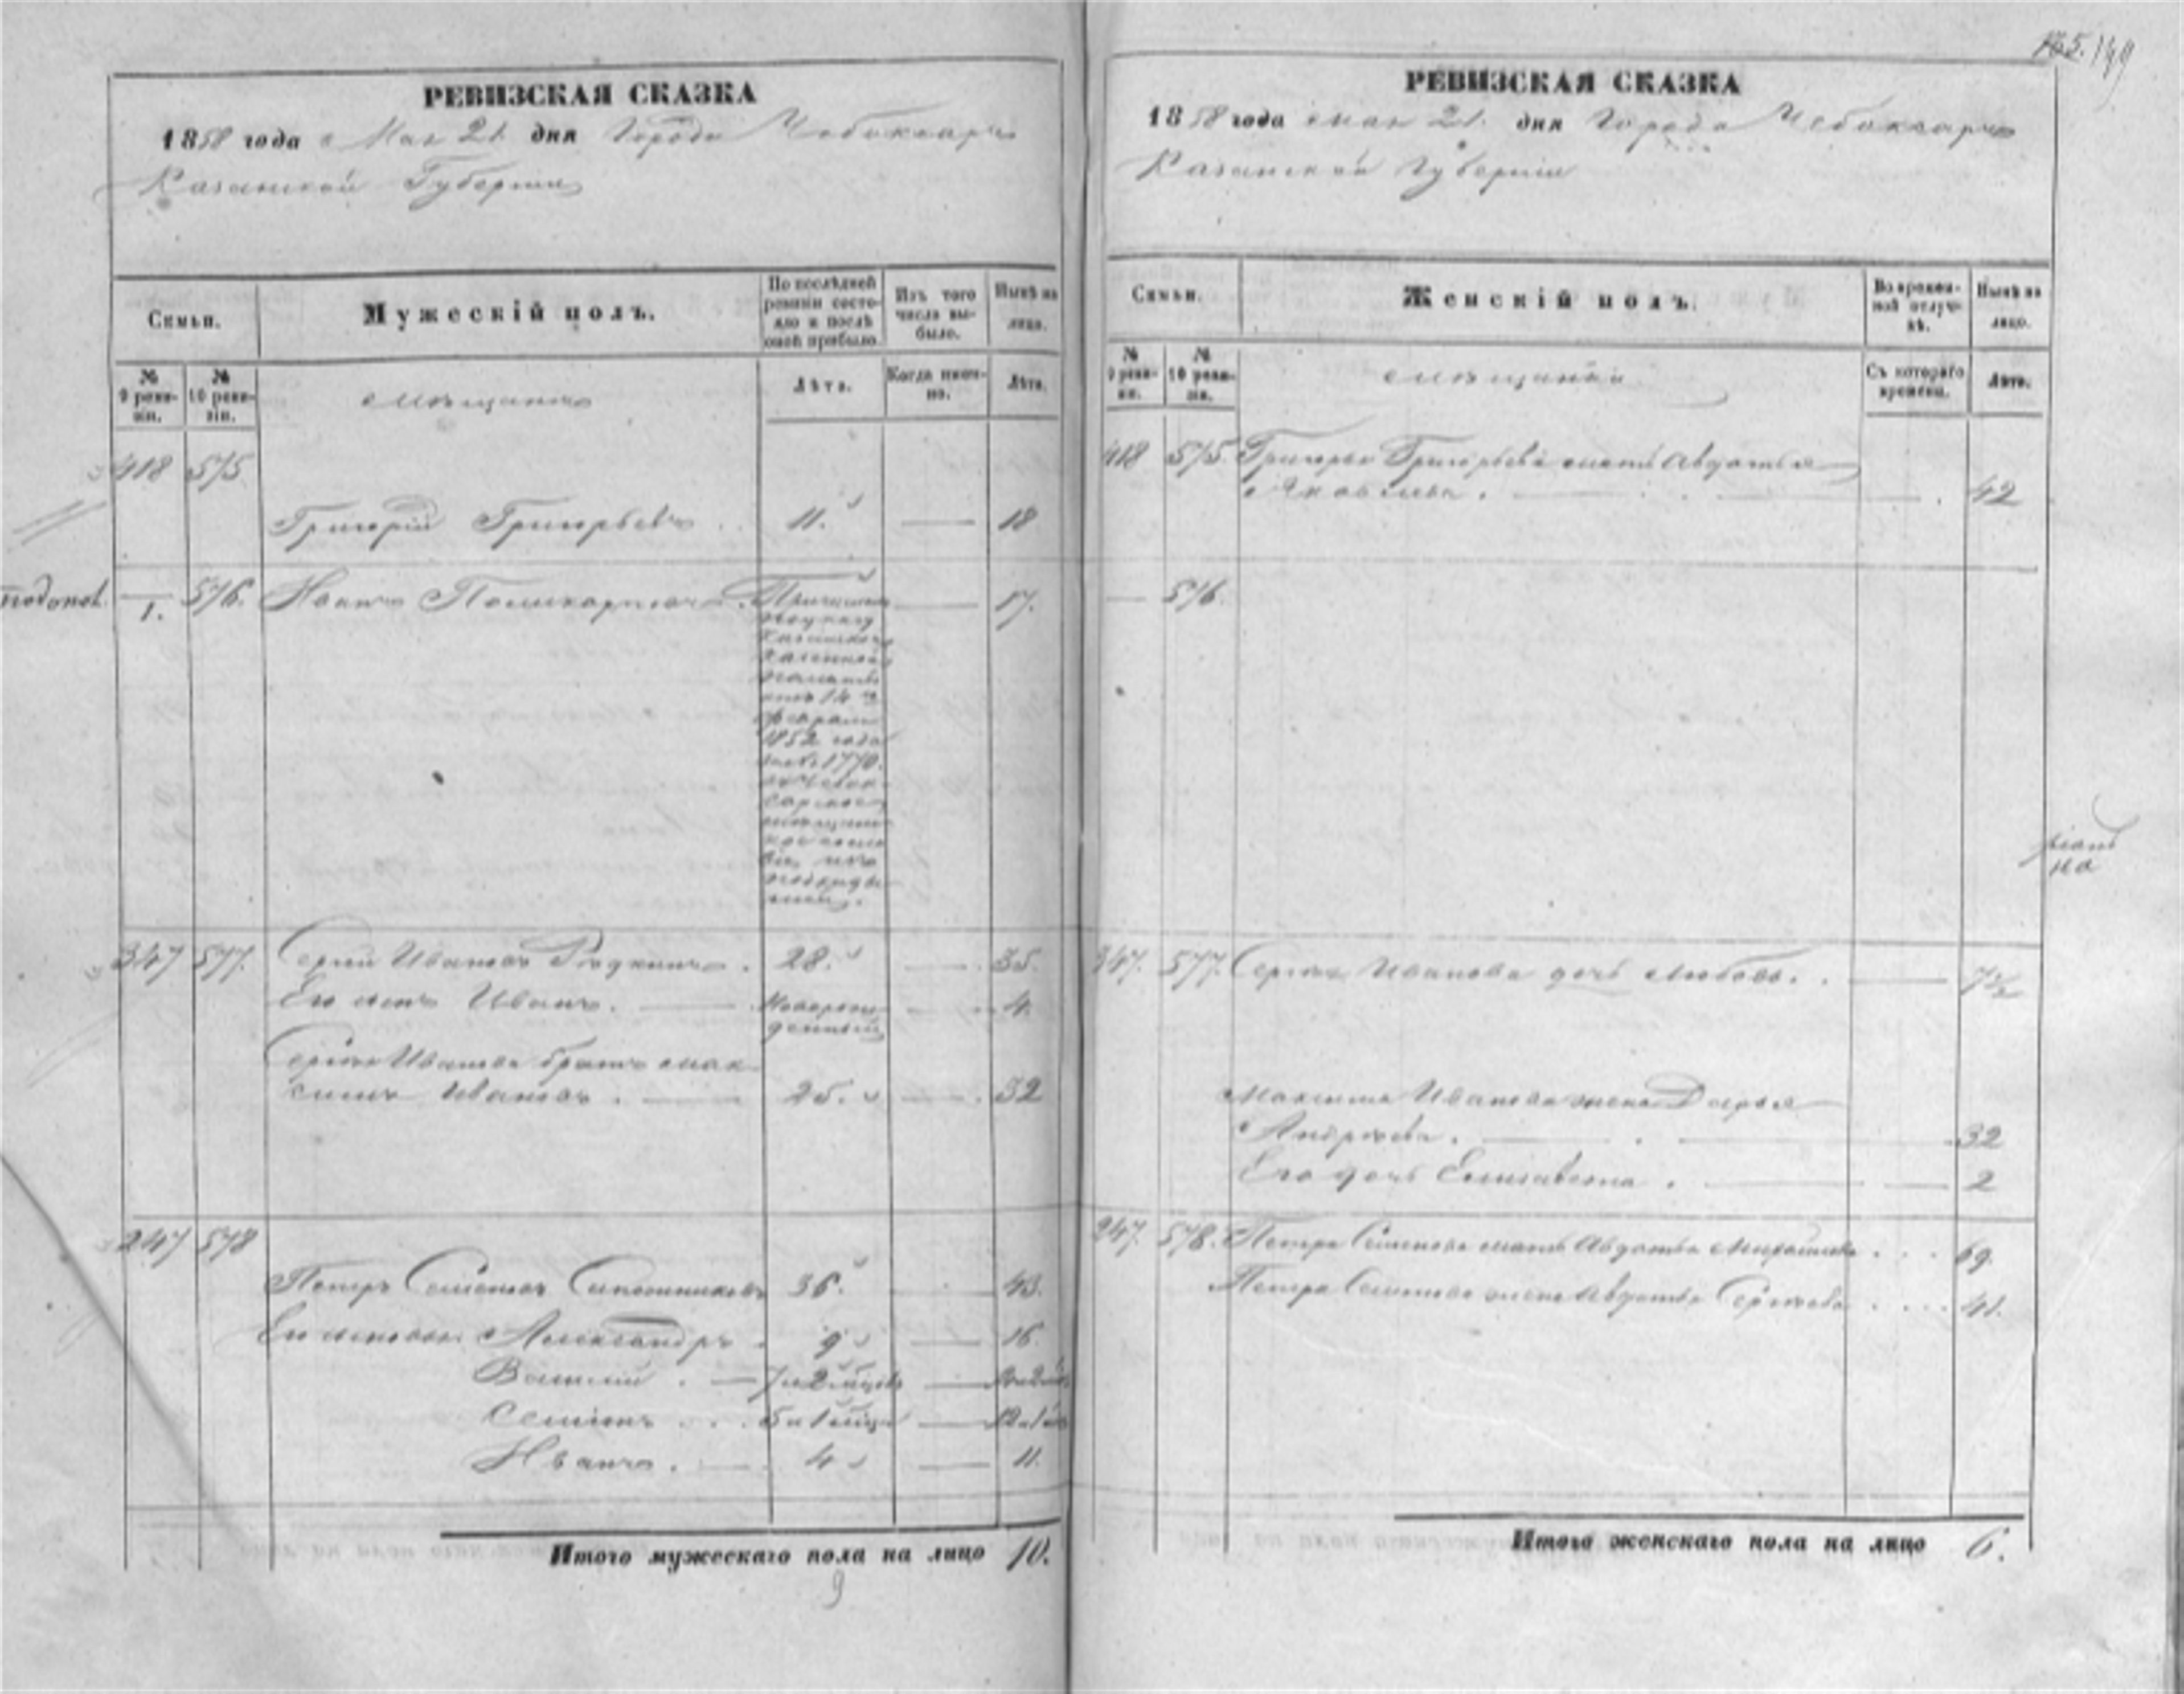 165. 149
РЕВИЗСКАЯ СКАЗКА
1858 года Мая 21 дня Города Чебоксаръ
Казанской Губерніи
Семьи.
Мужескій полъ.
По послѣдней ревизіи состояло и послѣ оной прибыло.
Изъ того числа выбыло.
Нынѣ на лицо.
№ 9 ревизіи.
№ 10 ревизіи.
мещане
Лѣта.
Когда именно.
Лѣта.
418 575
Григорій Григорьевъ . . 11. — 18
1. 576. Иванъ Поликарповъ . — 17.
Причисленъ
по указу
Казанской
Казенной
Палаты
отъ 14 го
февраля
1852 года
за № 1770.
въ Чебок-
сарское
347 577. Сергій Ивановъ . 28. — 35.
Его сынъ Иванъ. — Новорож- — 4.
денный
Сергія Иванова братъ Мак-
симъ Ивановъ . — 25. — 32
247 578
Петръ Семеновъ Сапожниковъ 36. — 43.
Его сыновья: Александръ 9 — 16.
Василій . — 7 и 2 —
Семенъ . . . 5 и 1 — 12 и 1
Иванъ . — 4 — 11.
Итого мужескаго пола на лицо 10.
9
РЕВИЗСКАЯ СКАЗКА
1858 года мая 21. дня Города Чебоксаръ
Казанской Губерніи
Семьи.
Женскій полъ.
Во временной отлучкѣ.
Нынѣ на лицо.
№ 9 ревизіи.
№ 10 ревизіи.
мещанки
Съ котораго времени.
Лѣта.
418 575. Григорья Григорьева мать Авдотья
Яковлева . — 42
— 576.
347. 577. Сергія Иванова дочь Любовь. . — 7 1/2
Максима Иванова жена Дарья
Андреева . — 32
Его дочь Елисавета . — 2
247. 578. Петра Семенова мать Авдотья . . . 69.
Петра Семенова жена Авдотья Сергѣева . . . 41.
Итого женскаго пола на лицо 6.